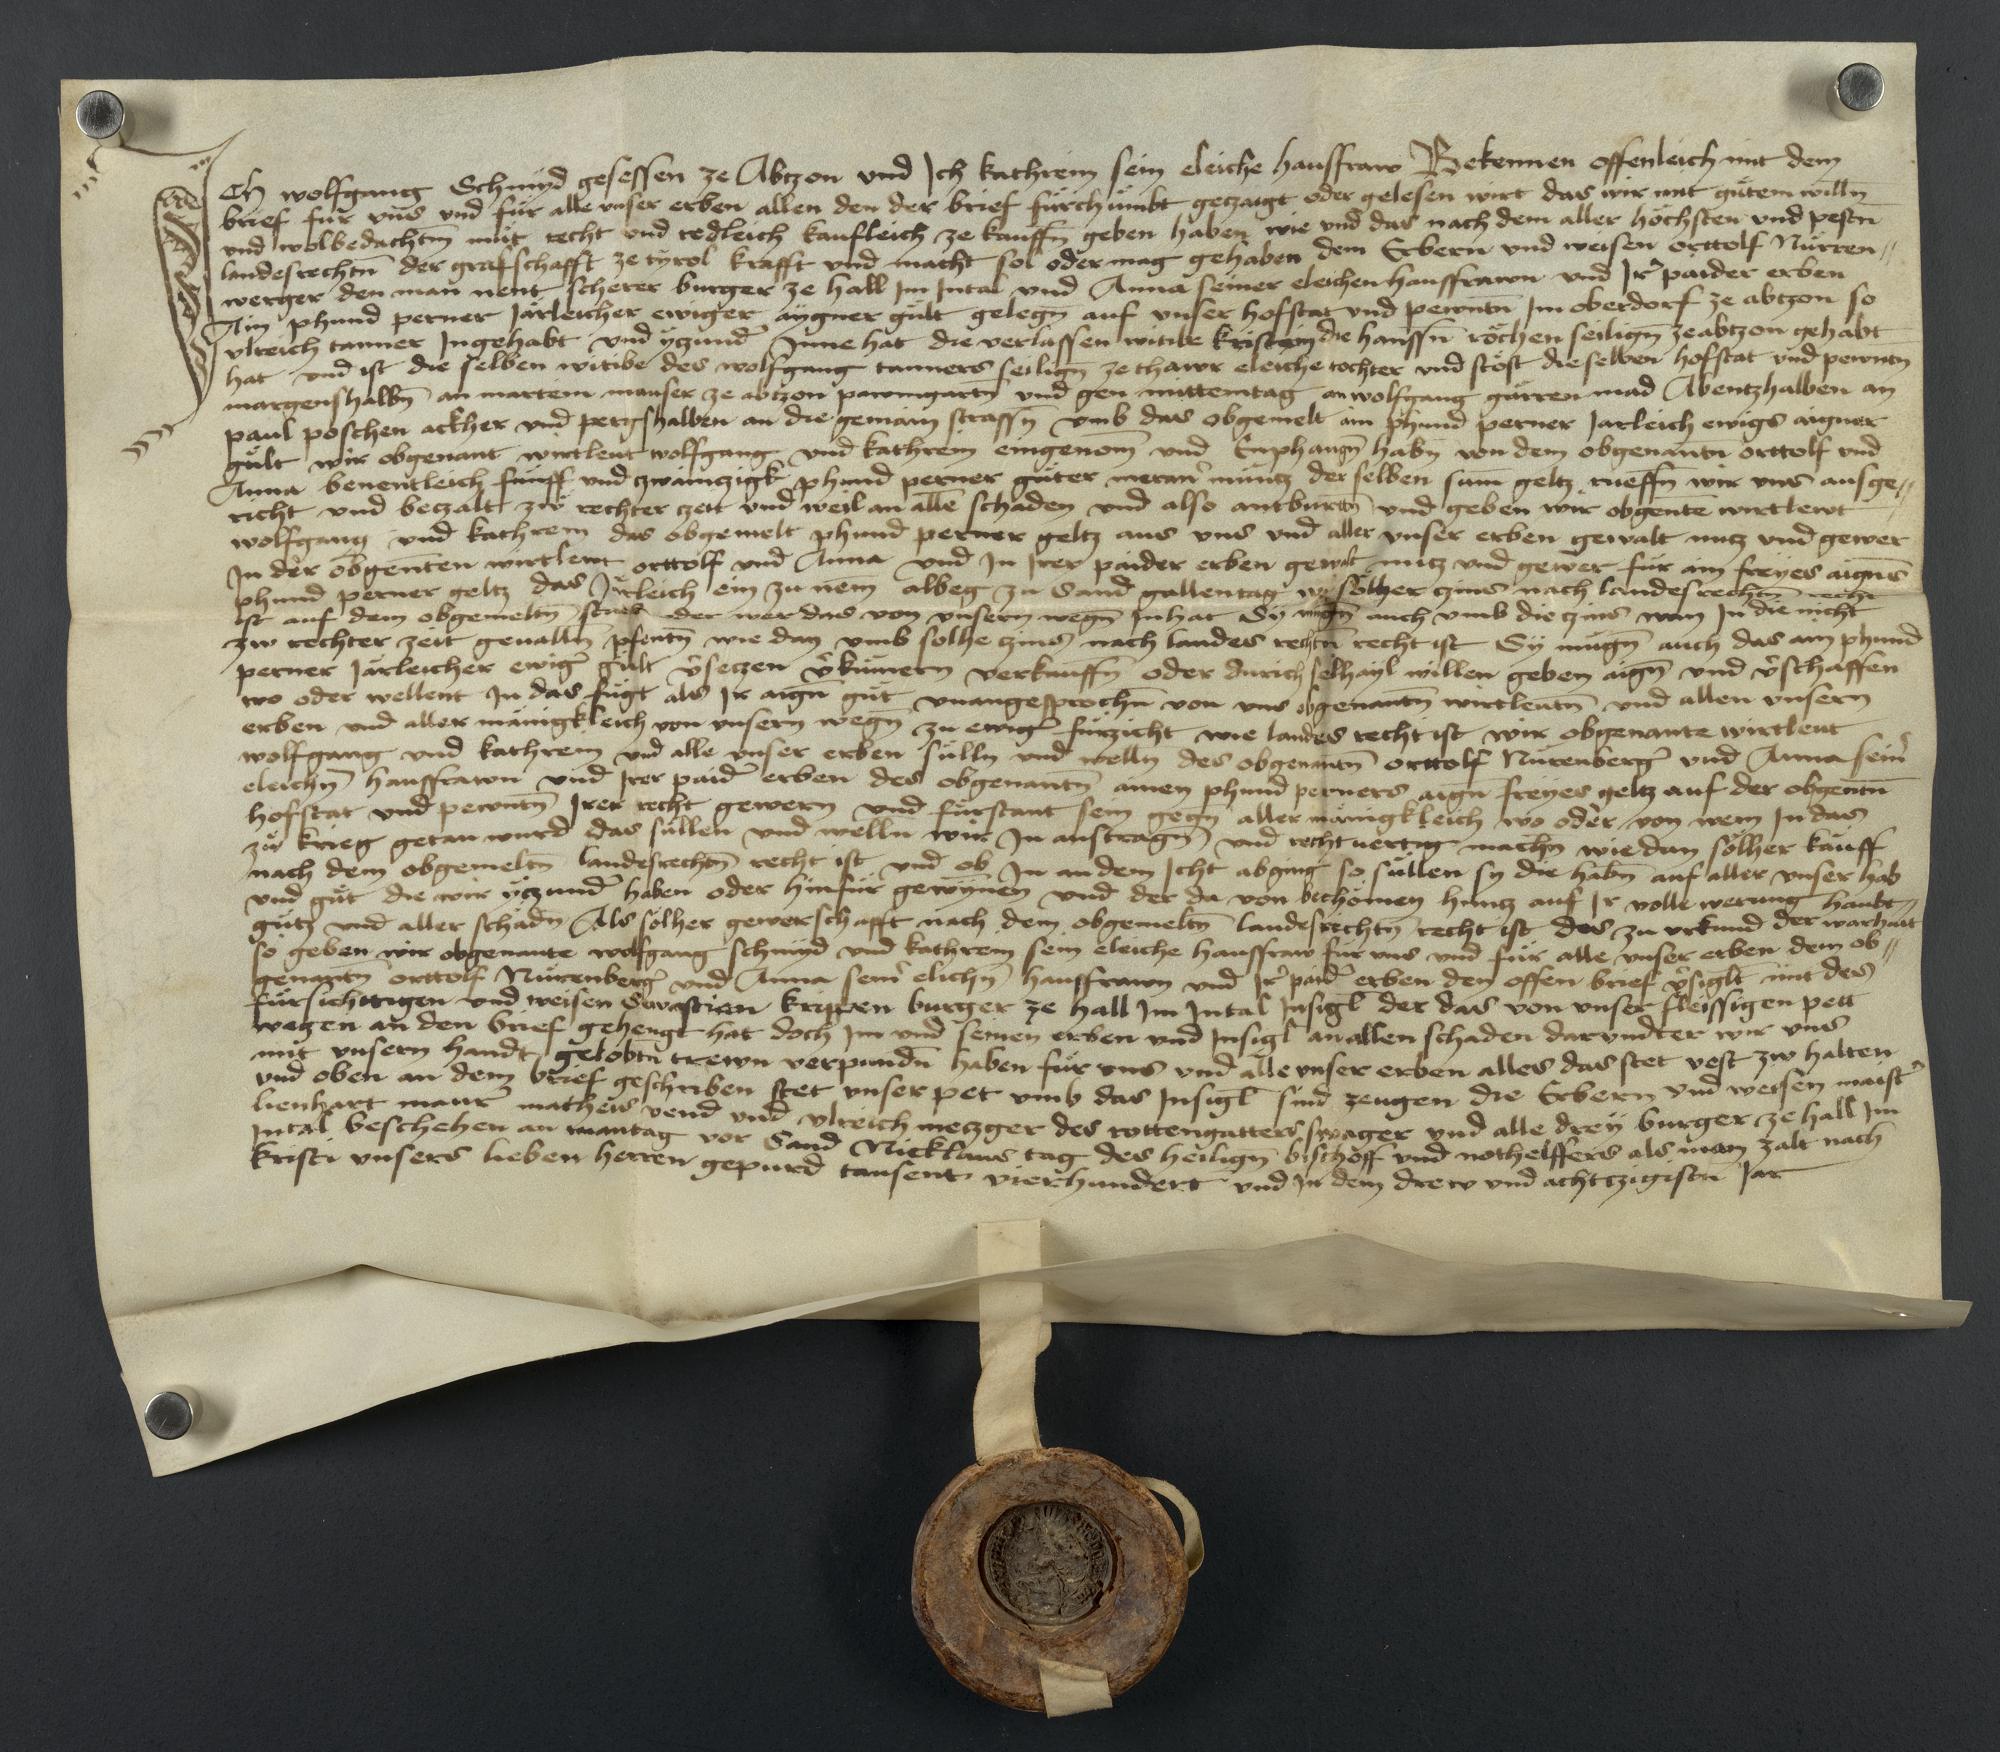 Ich wolfgang Schmyd gesessen ze Abtzon und Ich kathrein sein eleiche hausfraw Bekennen offenleich mit dem
brief für uns und für alle unser erben allen den der brief fürchümbt geczaigt oder gelesen wirt das wir mit gütem willn̄
und wolbedachtn̄ müt recht und redleich kaufleich ze kauffn̄ geben haben wie und das nach dem aller höchsten und pestn̄
landesrechtn̄ der grafschafft ze tyrol krafft und macht sol oder mag gehaben dem Erbern und weisen orttolf Nürren-
werger den man nent scherer burger ze hall Im Intal und Anna seiner eleichen hausfrawn und Ir paider erben
Ain phund perner Järleicher ewiger aygner gült gelegn̄ auf unser hofstat und pewntn̄ Im oberdorf ze abtzon so
ulreich tanner Ingehabt und yczund Inne hat die verlassen witibe kristein die hannsn̄ röchen seilign̄ ze abtzon gehabt
hat und ist die selben witibe des wolfgang tanners seilign̄ ze thawr eleiche tochter und stöst dieselben hofstat und pewntn̄
margenshalbn̄ an martein mauser ze abtzon pawmgartn̄ und gen mittemtag an wolfgang gärren mad Abentzhalben an
paul poschen ackher und pergshalben an die gemain strassn̄ umb das obgemelt ain phund perner Jarleich ewigs aigner
gült wir obgenant wirtleut wolfgang und kathrein eingenom̄ und Emphangn̄ habn̄ von dem obgenantn̄ orttolf und
Anna benentleich fünff und zwainczigk phund perner güter meran̄ müntz der selben sum̄ geltz rüeffn̄ wir uns ausge-
richt und beczalt zw rechter zeit und weil an alle schaden und also antburtn̄ und geben wir obgente wirtlewt
wolfgang und kathrein das obgemelt phund perner geltz aus uns und aller unser erben gewalt nutz und gewer
In der obgenten wirtleut orttolf und Anna und In Irer paider erben gewalt nutz und gewer für ain freyes aigns
phund perner geltz das Järleich ein zu nem̄ albeg zu Sand gallentag wie sölher zins nach landesrechtn̄ recht
ist auf dem obgemeltn̄ stuck oder wer das von unsern wegn̄ Inhat Sy mügn̄ auch umb die zins wan In die nicht
zw rechter zeit geualln̄ pfentn̄ wie dan umb solhe zins nach landes rechtn̄ recht ist Sy mügn̄ auch das ain phund
perner Järleicher ewiger gült v̄setzen v̄kümern verkauffn̄ oder durich selhayl willen geben aign̄ und v̄schaffen
wo oder wellent In das fügt als Ir aign̄ güt unangesprochn̄ von uns obgenantn̄ wirtleutn̄ und allen unsern
erben und aller mänigkleich von unsern wegn̄ zu ewiger fürzicht wie landes recht ist wir obgenante wirtleut
wolfgang und kathrein und alle unser erben sülln und welln des obgenantn̄ orttolf Nürenberger und Anna sein̄
eleichn̄ hausfrawn und Irer paider erben des obgenantn̄ ainen phund perners aign̄ freyes geltz auf der obgentn̄
hofstat und pewntn̄ Irer recht gewern und fürstant sein gegn̄ aller mänigkleich wo oder von wem In das
zu krieg getan wurd das süllen und welln wir In austragn̄ und rechtuertig machn̄ wie dan sölher kauff
nach dem obgemeltn̄ landesrechtn̄ recht ist und ob In an dem Icht abging so süllen sy die habn̄ auf aller unser hab
und güt die wir yczund haben oder hinfür gewynnen und der da von bechömen huntz auf Ir volle werung haubt-
gütz und aller schadn̄ Als sölher gewerschafft nach dem obgemeltn̄ landesrechtn̄ recht ist des zu urkund der warhait
so geben wir obgenante wolfgang schmyd und kathrein sein eleiche hausfraw für uns und für alle unser erben dem ob-
genantn̄ orttolf Nürenberger und Anna sein̄ elichn̄ hausfrawn und Ir paider erben den offen brief v̄siglt mit des
fürsichttigen und weisen Sevastian krippen burger ze hall Im Intal Insigl der das von unser fleissigen pett
wegen an den brief gehengt hat doch Im und seinen erben und Insigl an allen schaden darundter wir uns
mit unsern handt gelobtn̄ trewn verpundn̄ haben für uns und alle unser erben alles das stet vest zw halten
und oben an dem brief geschriben stet unser pet umb das Insigl sind zeugen die Erbern und weisen maister
lienhart maurer matheis vend und ulreich metzger des rottengatters swager und alle drey burger ze hall Im
Intal beschehen an mantag vor Sand Nicklaus tag des heilign̄ bischoff und nothelffers als man zalt nach
kristi unsers lieben herren gepurd tausent vierhundert und In dem drew und achtzigistn̄ Jar